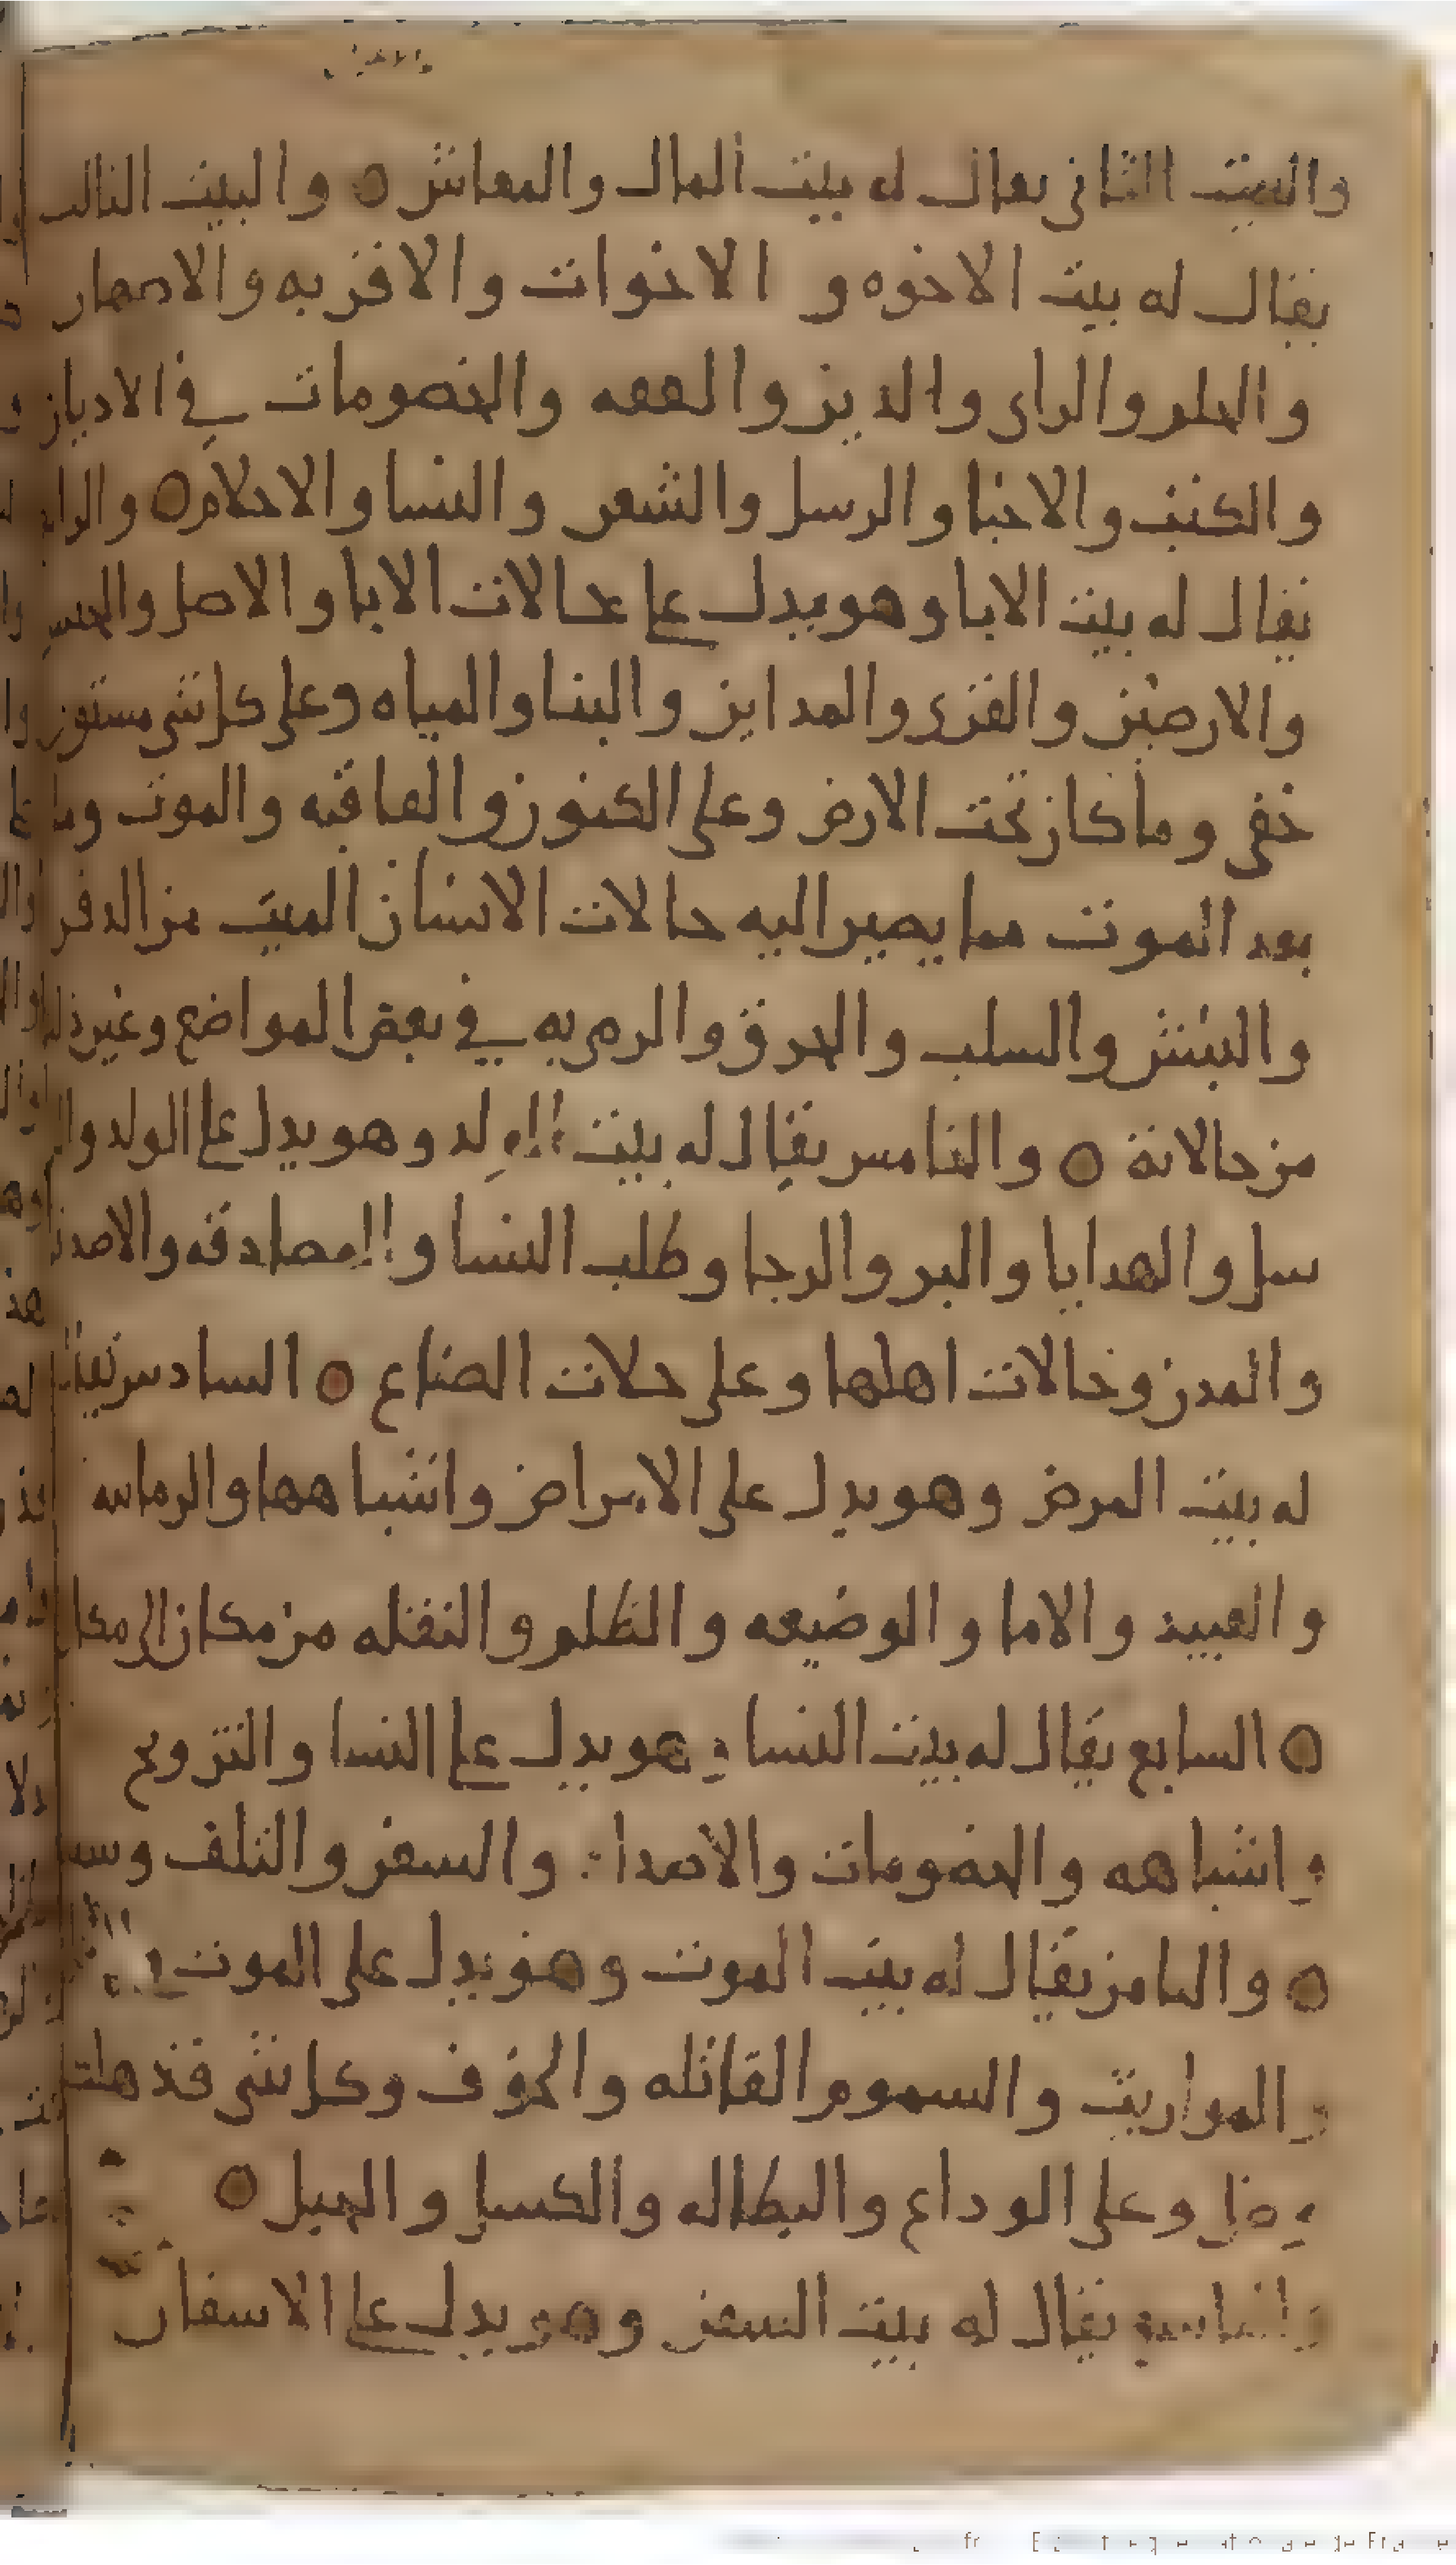 والبيت الثاني يقال له بيت المال والمعاش ٥ والبيت الثالث
يقال له بيت الاخوه و الاخوات والاقربه والاصهار
والحلم والراى والدين والفقه والخصومات في الاديان
والكتب والاخبا والرسل والشعر والنسا والاحلام ٥ والرابع
يقال له بيت الابا وهو يدل على حالات الابا والاصل والجنس
والارضين والقرى والمداين والبنا والمياه وعلى كل شي مستور
خفى وما كان تحت الارض وعلى الكنوز والعاقبه والموت وما
بعد الموت مما يصير اليه حالات الانسان الميت من الدفن
والنبش والسلب والحرق والرمى به في بعض المواضع وغير ذلك
من حالاته ٥ والخامس يقال له بيت الولد وهو يدل على الولد
سل والهدايا والبر والرجا وطلب النسا والمصادقه والاصدقا
والمدن وحالات اهلها وعلى حلات الضاع ٥ السادس يقال
له بيت المرض وهو يدل على الامراض واشباهها والزمانه
والعبيد والاما والوضيعه والظلم والنقله من مكان الى مكان
٥ السابع يقال له بيت النسا وهو يدل على النسا والتزويج
واشباهه والخصومات والاضداد والسفر والتلف
٥ والثامن يقال له بيت الموت وهو يدل على الموت
والمواريث والسموم القاتله والخوف وكل شي قد هلك
وضل وعلى الوداع والبطاله والكسل والحيل ٥
والتاسع يقال له بيت السفر وهو يدل على الاسفار